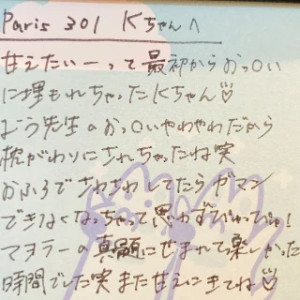 Paris 301 Kちゃんへ
甘えたいーって最初からおっ○い
に埋もれちゃったKちゃん♡
よう先生のおっ○いやわやわだから
枕がわりにされちゃったね笑
おふろでさわさわしてたらガマン
できなくなっちゃって思わず
マヨラーの真髄にせまれて楽しかった
時間でした笑また甘えにきてね♡